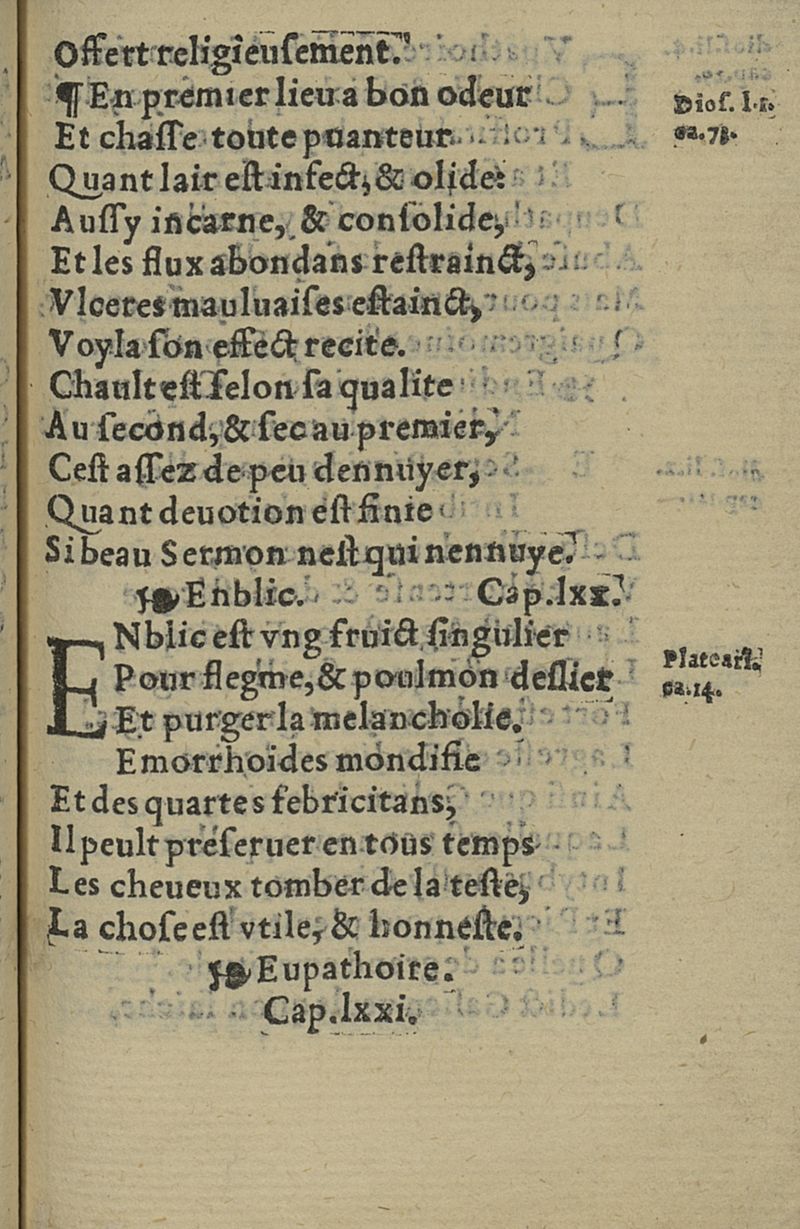 Offert religieusement.
¶ En premier lieu a bon odeur
Et chasse toute puanteur
Quant lair est infect, & olide:
Aussy incarne, & consolide,
Et les flux abondans restrainct,
Vlceres mauluaises estainct,
Voyla son effect recite.
Chault est selon sa qualite
Au second, & sec au premier,
Cest assez de peu dennuyer,
Quant deuotion est finie
Si beau Sermon nest qui nennuye.
Enblic. Cap. lxx.
ENblic est vng fruict singulier
Pour flegme, & poulmon deslier
Et purger la melancholie.
Emorrhoides mondifie
Et des quartes febricitans,
Il peult preseruer en tous temps
Les cheueux tomber de la teste,
La chose est vtile, & honneste.
Eupathoire.
Cap. lxxi.
Dios. l. 1.
ca. 73.
Platear.
ca. 14.